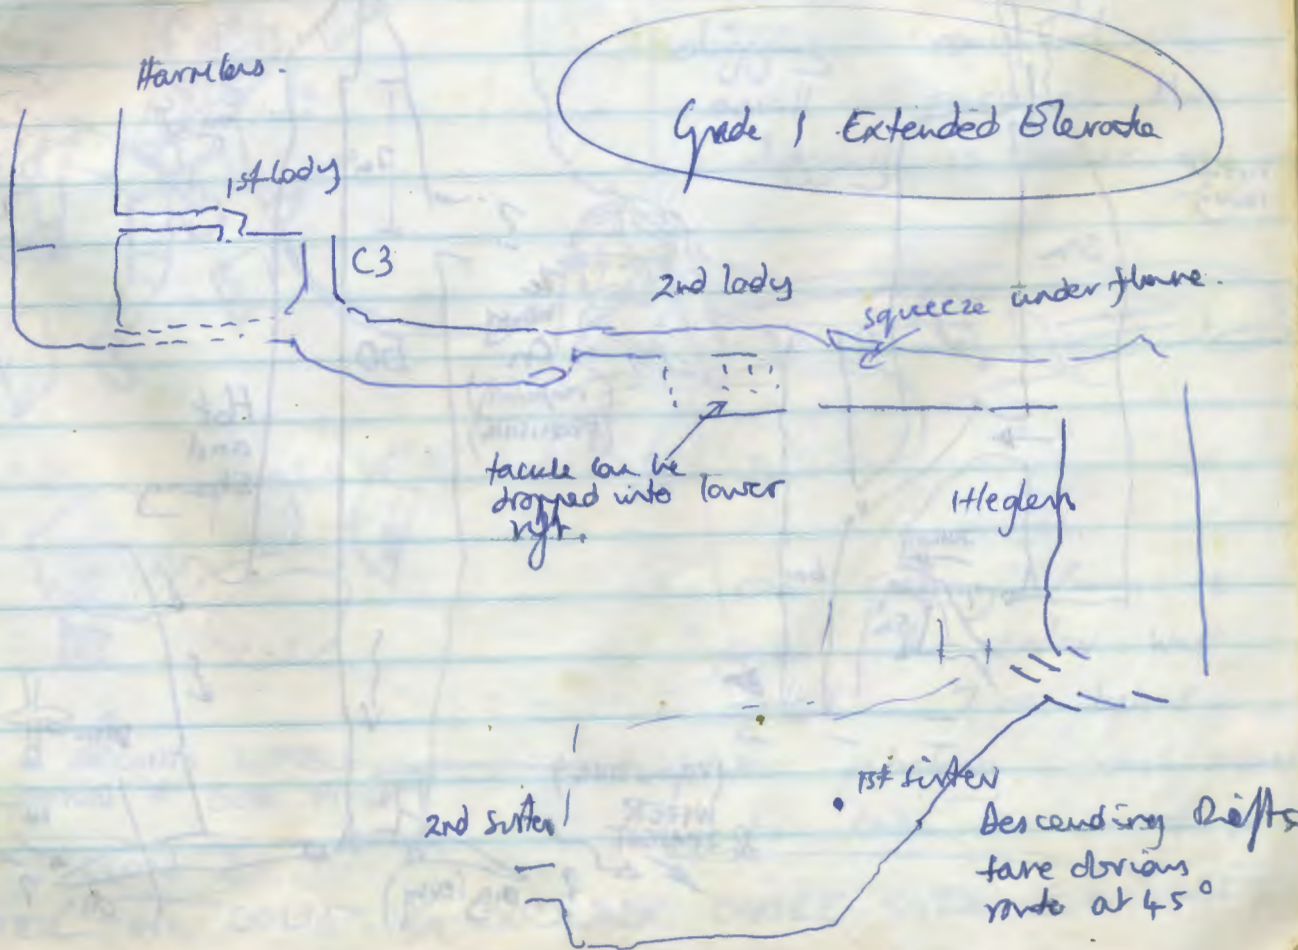 Harmless.
Grade 1 Extended Elevation
1st lady
C3
2nd lady
squeeze under flume.
tackle can be
dropped into lower
rift.
1st sister
2nd sister
Descending Rifts
take obvious
route at 45°